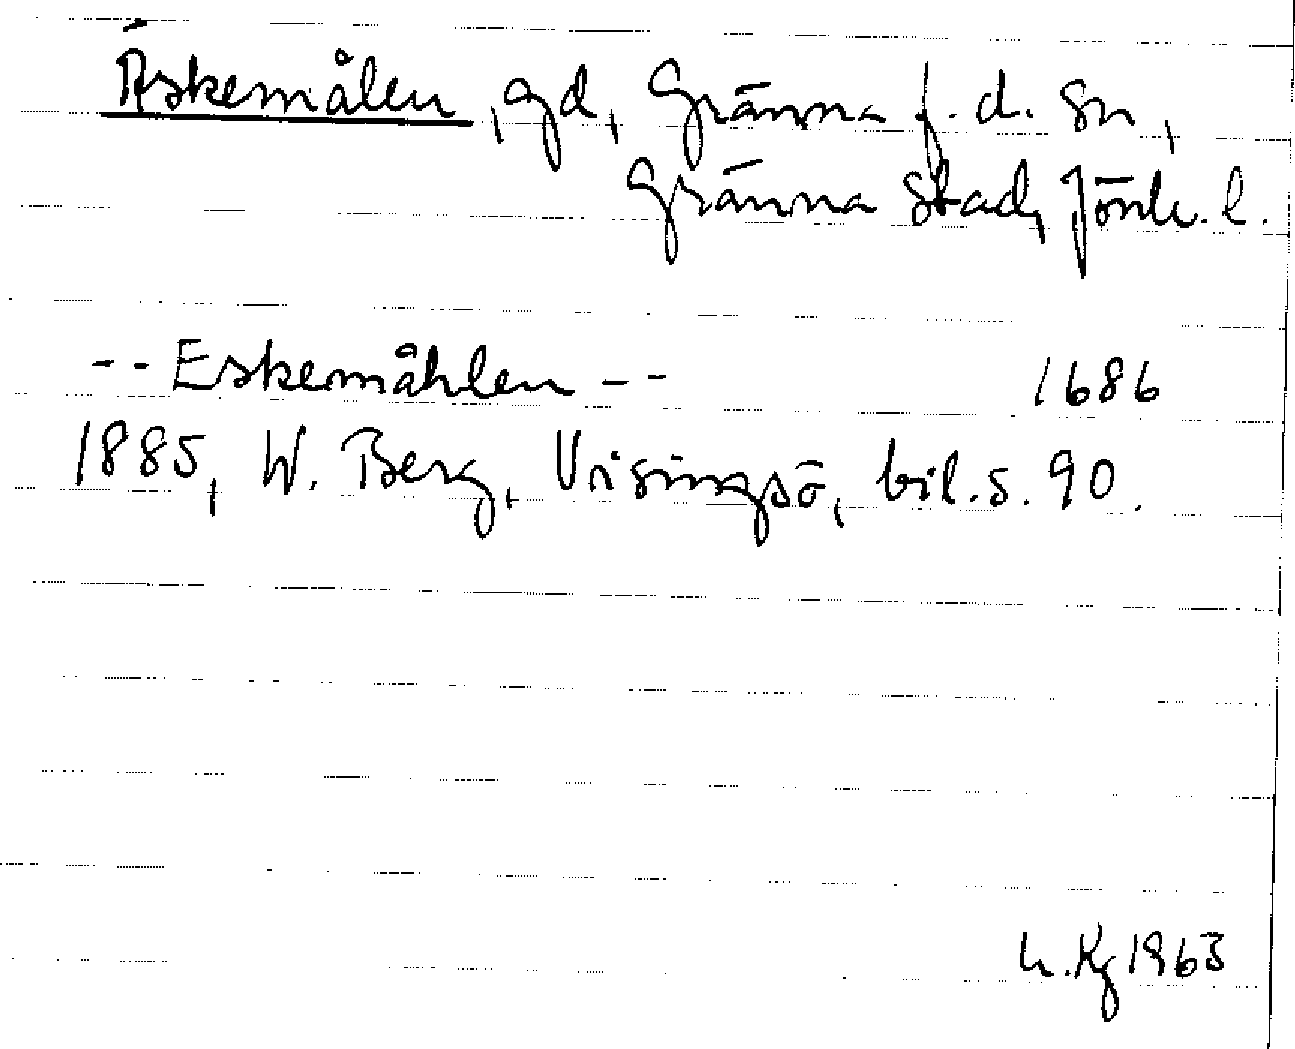 Äskemålen, gd, Gränna f.d. sn,
Gränna stad, Jönk. l.
-- Eskemåhlen -- 1686
1885, W. Berg, Visingsö, bil. s. 90.
h. Kg 1963